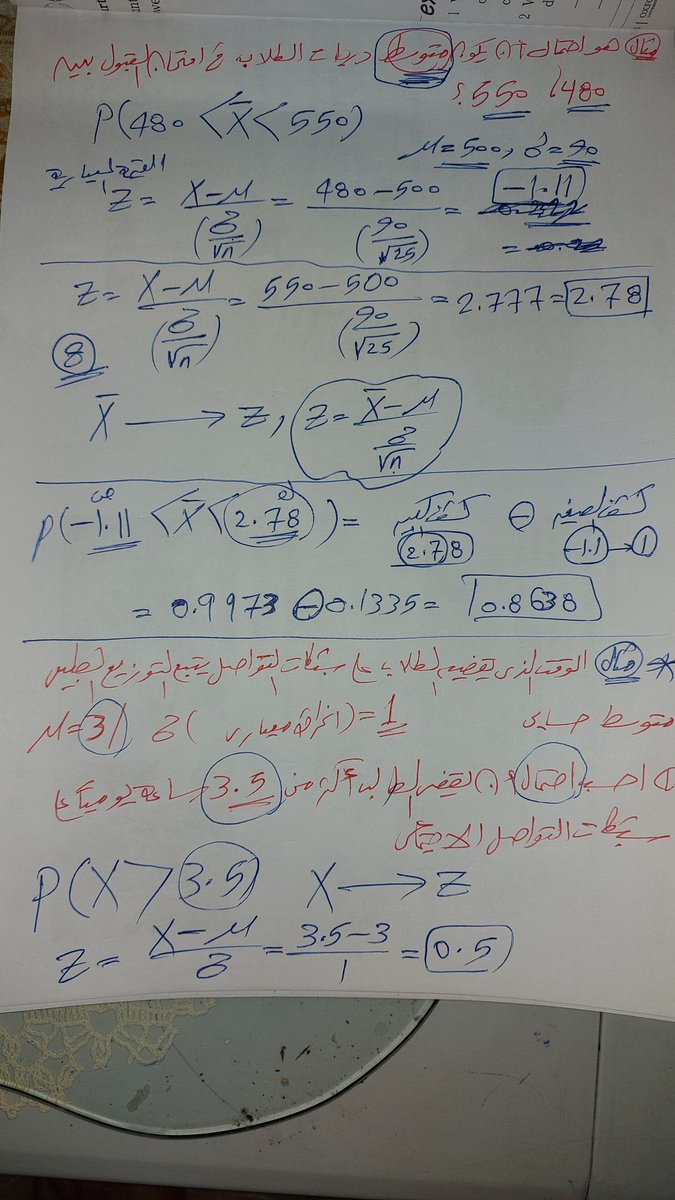 مثال هو احتمال ان يكون متوسط درجات الطلاب في امتحان القبول بين
480 ، 550 ؟
P(480 < X̄ < 550)
μ = 500 , σ = 90
القيمة المعيارية
Z = X-μ / (σ/√n) = 480-500 / (90/√25) = -1.11
Z = X-μ / (σ/√n) = 550-500 / (90/√25) = 2.777 = 2.78
8
X̄ → Z, Z = X̄-μ / σ/√n
P(-1.11 < X̄ < 2.78) = 2.78 ⊖ -1.1 → 1
= 0.9973 ⊖ 0.1335 = 0.8638
* مثال الوقت الذي يقضيه الطلاب على شبكات التواصل يتبع التوزيع الطبيعي
متوسط حسابي μ = 3 / σ (انحراف معياري) = 1
① احسب احتمال ان يقضي الطالب أكثر من 3.5 ساعة يومياً على
شبكات التواصل الاجتماعي
P(X > 3.5) X → Z
Z = X-μ / σ = 3.5-3 / 1 = 0.5